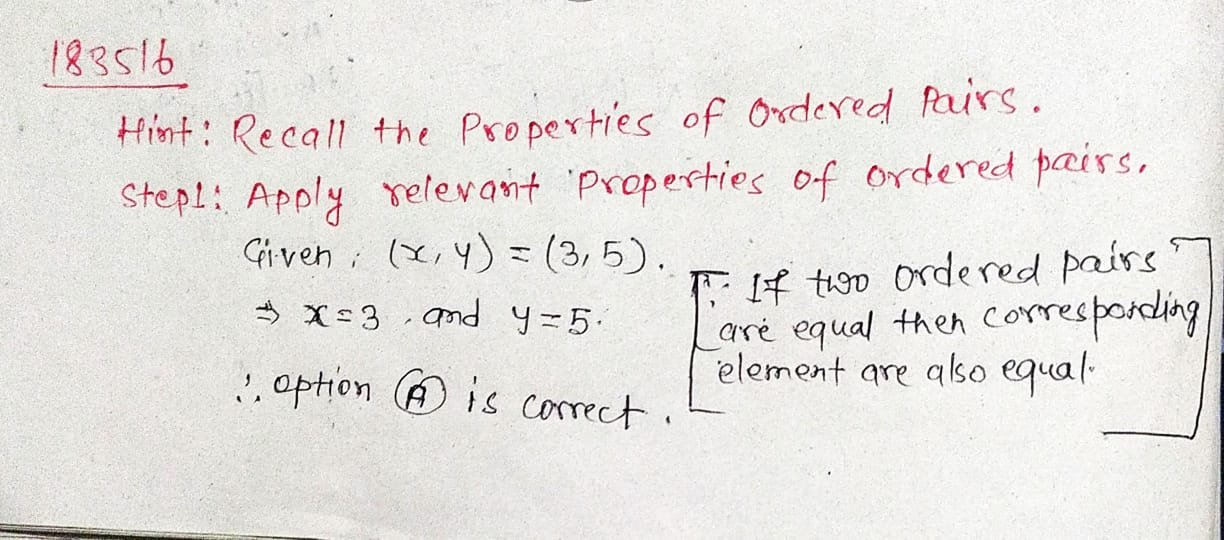 183516
Hint: Recall the Properties of Ordered Pairs.
Step1: Apply relevant Properties of ordered pairs.
Given, (x, y) = (3, 5).
⇒ x = 3 and y = 5.
∴ option Ⓐ is correct.
[∵ If two ordered pairs
are equal then corresponding
element are also equal.]